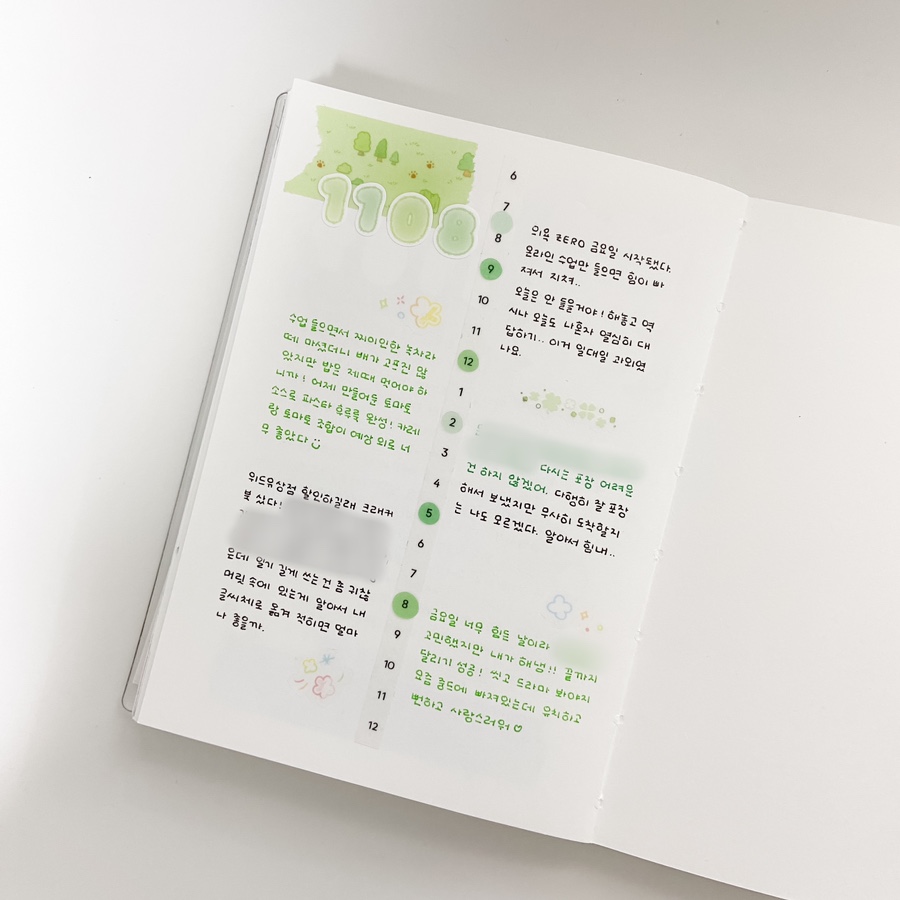 1108
수업 들으면서 찌이인한 녹차라
떼 마셨더니 배가 고프진 않
았지만 밥은 제때 먹어야 하
니까! 어제 만들어둔 토마토
소스로 파스타 휴루룩 완성! 카레
랑 토마토 조합이 예상 외로 너
무 좋았다
위드유상점 할인하길래 크래커
북 샀다!
은데 일기 길게 쓰는건 좀 귀찮
머릿 속에 있는게 알아서 내
글씨체로 옮겨 적히면 얼마
나 좋을까.
6
7
8
9
10
11
12
1
2
3
4
5
6
7
8
9
10
11
12
의욕 ZERO 금요일 시작됐다.
온라인 수업만 들으면 힘이 빠
져서 지쳐..
오늘은 안 들을거야! 해놓고 역
시나 오늘도 나혼자 열심히 대
답하기.. 이거 일대일 과외였
나요.
다시는 포장 어려운
건 하지 않겠어. 다행히 잘 포장
해서 보냈지만 무사히 도착할지
는 나도 모르겠다. 알아서 힘내..
금요일 너무 힘든 날이라
고민했지만 내가 해냄!! 끝까지
달리기 성공! 씻고 드라마 봐야지
요즘 중드에 빠져있는데 유치하고
뻔하고 사랑스러워